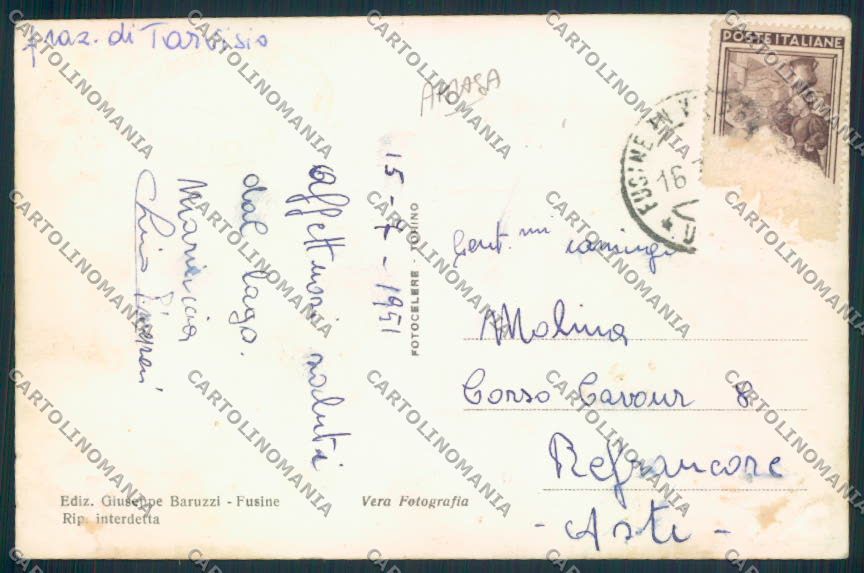 fraz. di Tarvisio
POSTE ITALIANE
FUSINE IN V
16
15-7-1951
affettuosi saluti
dal lago.
FOTOCELERE - TORINO
Gent.mi coniugi
Molina
Corso Cavour 8
Refrancore
- Asti -
Ediz. Giuseppe Baruzzi - Fusine
Rip. interdetta
Vera Fotografia
CARTOLINOMANIA